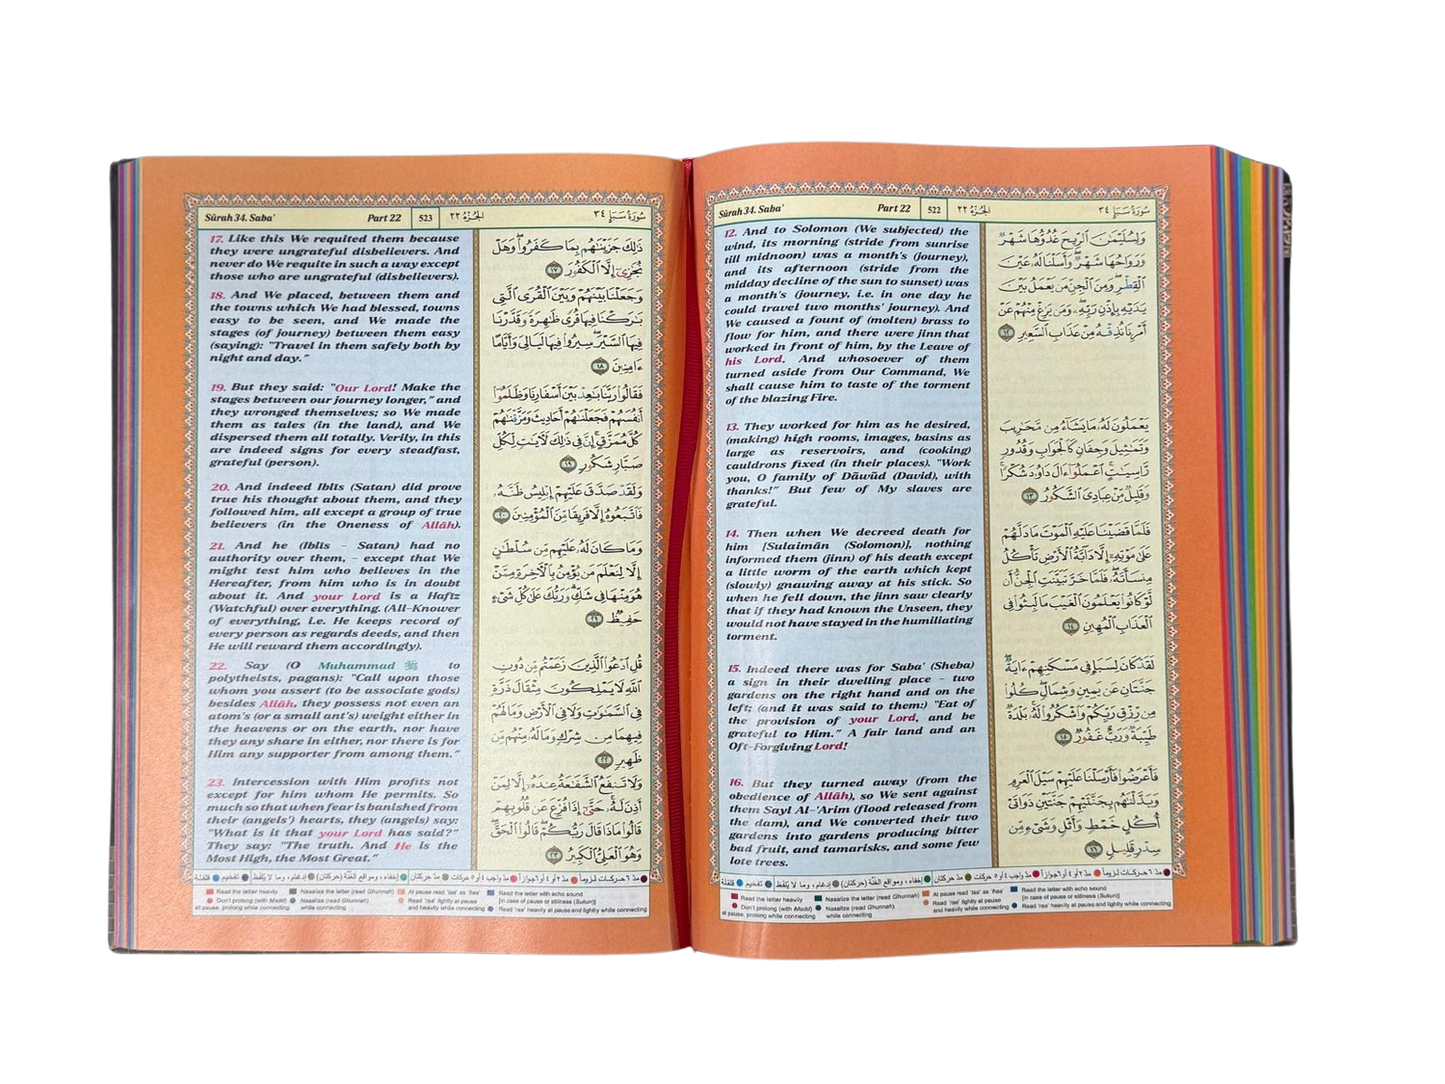 Sûrah 34. Saba'
Part 22
522
الجزء ٢٢
سورة سبإ ٣٤
12. And to Solomon (We subjected) the
wind, its morning (stride from sunrise
till midnoon) was a month's (journey),
and its afternoon (stride from the
midday decline of the sun to sunset) was
a month's (journey, i.e. in one day he
could travel two months' journey). And
We caused a fount of (molten) brass to
flow for him, and there were jinn that
worked in front of him, by the Leave of
his Lord. And whosoever of them
turned aside from Our Command, We
shall cause him to taste of the torment
of the blazing Fire.
13. They worked for him as he desired,
(making) high rooms, images, basins as
large as reservoirs, and (cooking)
cauldrons fixed (in their places). "Work
you, O family of Dãwûd (David), with
thanks!" But few of My slaves are
grateful.
14. Then when We decreed death for
him [Sulaimãn (Solomon)], nothing
informed them (jinn) of his death except
a little worm of the earth which kept
(slowly) gnawing away at his stick. So
when he fell down, the jinn saw clearly
that if they had known the Unseen, they
would not have stayed in the humiliating
torment.
15. Indeed there was for Saba' (Sheba)
a sign in their dwelling place – two
gardens on the right hand and on the
left; (and it was said to them:) "Eat of
the provision of your Lord, and be
grateful to Him." A fair land and an
Oft-Forgiving Lord!
16. But they turned away (from the
obedience of Allãh), so We sent against
them Sayl Al-'Arim (flood released from
the dam), and We converted their two
gardens into gardens producing bitter
bad fruit, and tamarisks, and some few
lote trees.
وَلِسُلَيْمَٰنَ ٱلرِّيحَ غُدُوُّهَا شَهْرٌ
وَرَوَاحُهَا شَهْرٌ ۖ وَأَسَلْنَا لَهُۥ عَيْنَ
ٱلْقِطْرِ ۖ وَمِنَ ٱلْجِنِّ مَن يَعْمَلُ بَيْنَ
يَدَيْهِ بِإِذْنِ رَبِّهِۦ ۖ وَمَن يَزِغْ مِنْهُمْ عَنْ
أَمْرِنَا نُذِقْهُ مِنْ عَذَابِ ٱلسَّعِيرِ ١٢
يَعْمَلُونَ لَهُۥ مَا يَشَآءُ مِن مَّحَٰرِيبَ
وَتَمَٰثِيلَ وَجِفَانٍ كَٱلْجَوَابِ وَقُدُورٍ
رَّاسِيَٰتٍ ۚ ٱعْمَلُوٓا۟ ءَالَ دَاوُۥدَ شُكْرًا ۚ
وَقَلِيلٌ مِّنْ عِبَادِىَ ٱلشَّكُورُ ١٣
فَلَمَّا قَضَيْنَا عَلَيْهِ ٱلْمَوْتَ مَا دَلَّهُمْ
عَلَىٰ مَوْتِهِۦٓ إِلَّا دَآبَّةُ ٱلْأَرْضِ تَأْكُلُ
مِنسَأَتَهُۥ ۖ فَلَمَّا خَرَّ تَبَيَّنَتِ ٱلْجِنُّ أَن
لَّوْ كَانُوا۟ يَعْلَمُونَ ٱلْغَيْبَ مَا لَبِثُوا۟ فِى
ٱلْعَذَابِ ٱلْمُهِينِ ١٤
لَقَدْ كَانَ لِسَبَإٍ فِى مَسْكَنِهِمْ ءَايَةٌ ۖ
جَنَّتَانِ عَن يَمِينٍ وَشِمَالٍ ۖ كُلُوا۟
مِن رِّزْقِ رَبِّكُمْ وَٱشْكُرُوا۟ لَهُۥ ۚ بَلْدَةٌ
طَيِّبَةٌ وَرَبٌّ غَفُورٌ ١٥
فَأَعْرَضُوا۟ فَأَرْسَلْنَا عَلَيْهِمْ سَيْلَ ٱلْعَرِمِ
وَبَدَّلْنَٰهُم بِجَنَّتَيْهِمْ جَنَّتَيْنِ ذَوَاتَىْ
أُكُلٍ خَمْطٍ وَأَثْلٍ وَشَىْءٍ مِّن
سِدْرٍ قَلِيلٍ ١٦
مدّ ٦ حركات لزوماً مدّ ٢ أو ٤ أو ٦ جوازاً مدّ واجب ٤ أو ٥ حركات مدّ حركتان إخفاء، ومواقع الغُنَّة (حركتان) إدغام، وما لا يُلفَظ تفخيم قلقلة
Read the letter heavily
Nasalize the letter (read Ghunnah)
At pause read 'taa' as 'haa'
Read the letter with echo sound
Don't prolong (with Madd)
Nasalize (read Ghunnah)
Read 'raa' lightly at pause
[in case of pause or stillness (Sukun)]
at pause, prolong while connecting
while connecting
and heavily while connecting
Read 'raa' heavily at pause and lightly while connecting
Sûrah 34. Saba'
Part 22
523
الجزء ٢٢
سورة سبإ ٣٤
17. Like this We requited them because
they were ungrateful disbelievers. And
never do We requite in such a way except
those who are ungrateful (disbelievers).
18. And We placed, between them and
the towns which We had blessed, towns
easy to be seen, and We made the
stages (of journey) between them easy
(saying): "Travel in them safely both by
night and day."
19. But they said: "Our Lord! Make the
stages between our journey longer," and
they wronged themselves; so We made
them as tales (in the land), and We
dispersed them all totally. Verily, in this
are indeed signs for every steadfast,
grateful (person).
20. And indeed Iblîs (Satan) did prove
true his thought about them, and they
followed him, all except a group of true
believers (in the Oneness of Allãh).
21. And he (Iblîs – Satan) had no
authority over them, – except that We
might test him who believes in the
Hereafter, from him who is in doubt
about it. And your Lord is a Hafîz
(Watchful) over everything. (All-Knower
of everything, i.e. He keeps record of
every person as regards deeds, and then
He will reward them accordingly).
22. Say (O Muhammad ﷺ to
polytheists, pagans): "Call upon those
whom you assert (to be associate gods)
besides Allãh, they possess not even an
atom's (or a small ant's) weight either in
the heavens or on the earth, nor have
they any share in either, nor there is for
Him any supporter from among them."
23. Intercession with Him profits not
except for him whom He permits. So
much so that when fear is banished from
their (angels') hearts, they (angels) say:
"What is it that your Lord has said?"
They say: "The truth. And He is the
Most High, the Most Great."
ذَٰلِكَ جَزَيْنَٰهُم بِمَا كَفَرُوا۟ ۖ وَهَلْ
نُجَٰزِىٓ إِلَّا ٱلْكَفُورَ ١٧
وَجَعَلْنَا بَيْنَهُمْ وَبَيْنَ ٱلْقُرَى ٱلَّتِى
بَٰرَكْنَا فِيهَا قُرًى ظَٰهِرَةً وَقَدَّرْنَا
فِيهَا ٱلسَّيْرَ ۖ سِيرُوا۟ فِيهَا لَيَالِىَ وَأَيَّامًا
ءَامِنِينَ ١٨
فَقَالُوا۟ رَبَّنَا بَٰعِدْ بَيْنَ أَسْفَارِنَا وَظَلَمُوٓا۟
أَنفُسَهُمْ فَجَعَلْنَٰهُمْ أَحَادِيثَ وَمَزَّقْنَٰهُمْ
كُلَّ مُمَزَّقٍ ۚ إِنَّ فِى ذَٰلِكَ لَءَايَٰتٍ لِّكُلِّ
صَبَّارٍ شَكُورٍ ١٩
وَلَقَدْ صَدَّقَ عَلَيْهِمْ إِبْلِيسُ ظَنَّهُۥ
فَٱتَّبَعُوهُ إِلَّا فَرِيقًا مِّنَ ٱلْمُؤْمِنِينَ ٢٠
وَمَا كَانَ لَهُۥ عَلَيْهِم مِّن سُلْطَٰنٍ
إِلَّا لِنَعْلَمَ مَن يُؤْمِنُ بِٱلْءَاخِرَةِ مِمَّنْ
هُوَ مِنْهَا فِى شَكٍّ ۗ وَرَبُّكَ عَلَىٰ كُلِّ شَىْءٍ
حَفِيظٌ ٢١
قُلِ ٱدْعُوا۟ ٱلَّذِينَ زَعَمْتُم مِّن دُونِ
ٱللَّهِ ۖ لَا يَمْلِكُونَ مِثْقَالَ ذَرَّةٍ
فِى ٱلسَّمَٰوَٰتِ وَلَا فِى ٱلْأَرْضِ وَمَا لَهُمْ
فِيهِمَا مِن شِرْكٍ وَمَا لَهُۥ مِنْهُم مِّن
ظَهِيرٍ ٢٢
وَلَا تَنفَعُ ٱلشَّفَٰعَةُ عِندَهُۥٓ إِلَّا لِمَنْ
أَذِنَ لَهُۥ ۚ حَتَّىٰٓ إِذَا فُزِّعَ عَن قُلُوبِهِمْ
قَالُوا۟ مَاذَا قَالَ رَبُّكُمْ ۖ قَالُوا۟ ٱلْحَقَّ ۖ
وَهُوَ ٱلْعَلِىُّ ٱلْكَبِيرُ ٢٣
مدّ ٦ حركات لزوماً مدّ ٢ أو ٤ أو ٦ جوازاً مدّ واجب ٤ أو ٥ حركات مدّ حركتان إخفاء، ومواقع الغُنَّة (حركتان) إدغام، وما لا يُلفَظ تفخيم قلقلة
Read the letter heavily
Nasalize the letter (read Ghunnah)
At pause read 'taa' as 'haa'
Read the letter with echo sound
Don't prolong (with Madd)
Nasalize (read Ghunnah)
Read 'raa' lightly at pause
[in case of pause or stillness (Sukun)]
at pause, prolong while connecting
while connecting
and heavily while connecting
Read 'raa' heavily at pause and lightly while connecting